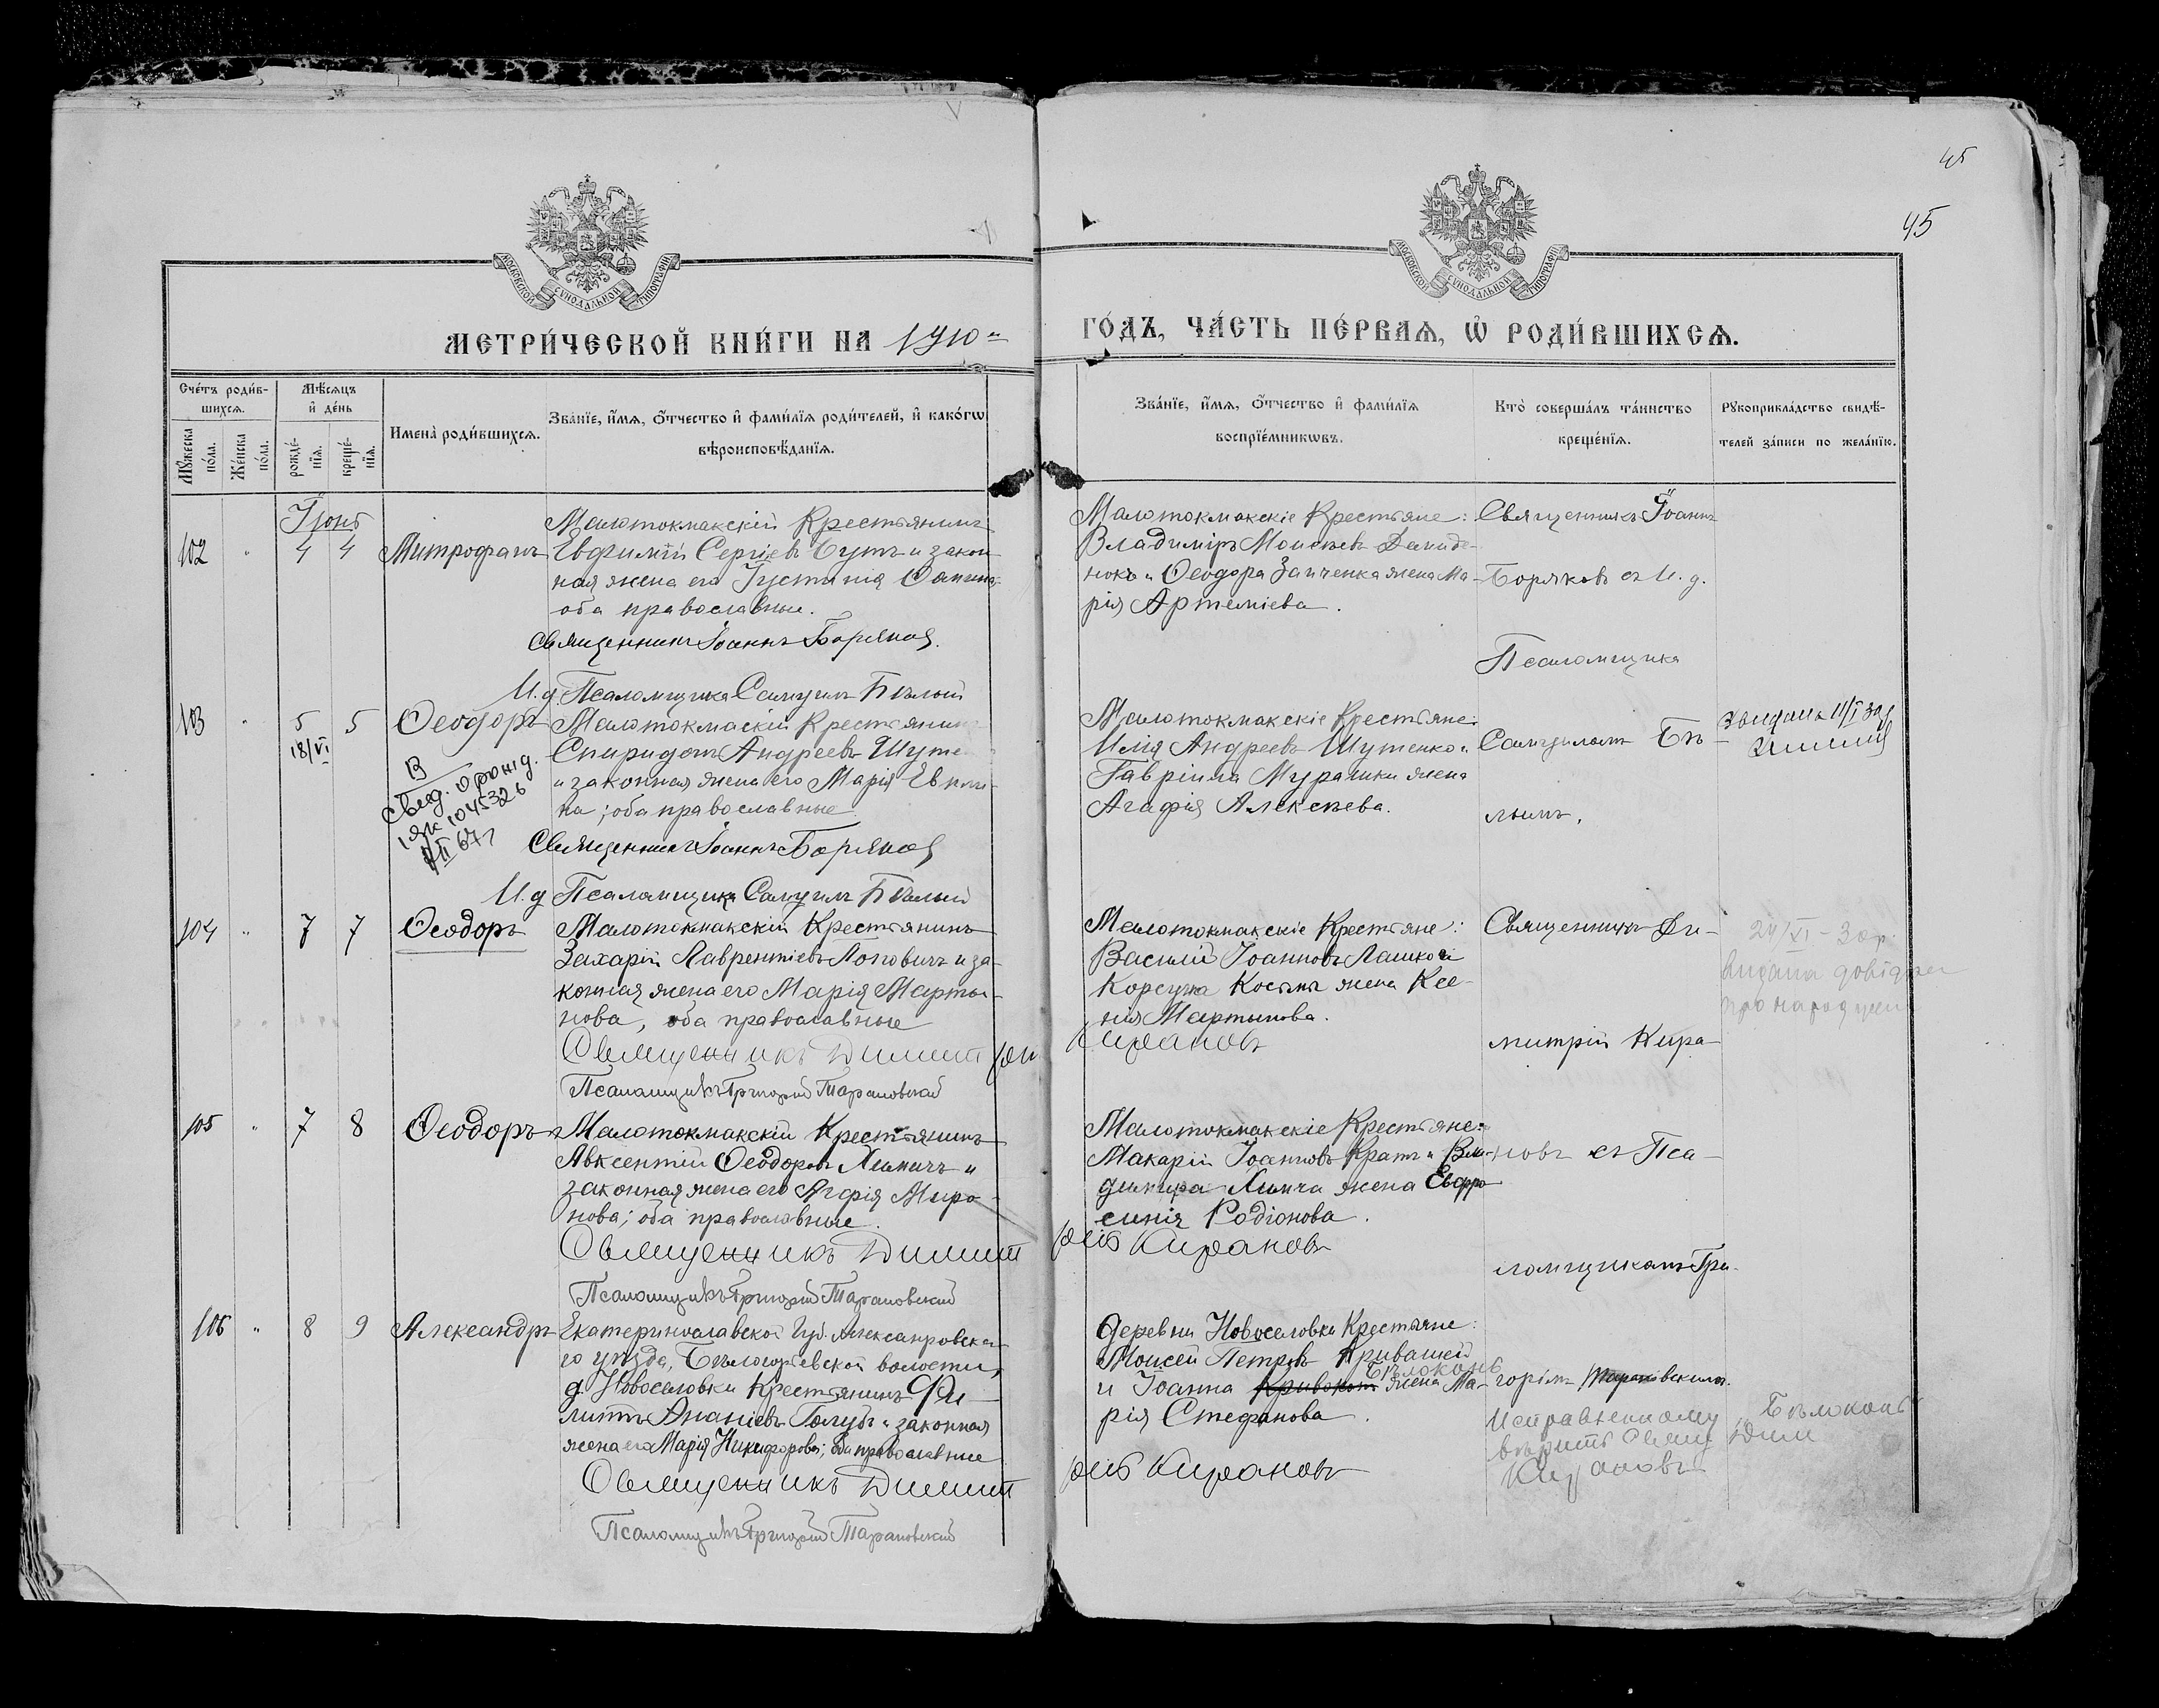 45
45
МОСКОВСКОЙ СУНОДАЛЬНОЙ ТИПОГРАФІИ
МОСКОВСКОЙ СУНОДАЛЬНОЙ ТИПОГРАФІИ
МЕТРИ́ЧЕСКОЙ КНИ́ГИ НА 1910
ГО́ДЪ, ЧА́СТЬ ПЕ́РВАѦ, Ѡ҆ РОДИ́ВШИХСѦ.
Сче́тъ роди́в-
шихсѧ.
Мꙋ́жеска по́ла.
Же́нска по́ла.
Мѣ́сѧцъ
и҆ де́нь
рожде́-
нїѧ.
креще́-
нїѧ.
Имена̀ роди́вшихсѧ.
Зва́нїе, и҆́мѧ, ѻ҆́тчество и҆ фами́лїѧ роди́телей, и҆ како́гѡ
вѣроисповѣ́данїѧ.
Зва́нїе, и҆́мѧ, ѻ҆́тчество и҆ фами́лїѧ
воспрїе́мникѡвъ.
Кто̀ соверша́лъ та́инство
креще́нїѧ.
Рꙋкоприкла́дство свидѣ́-
телей за́писи по жела́нїю.
Іюнь
102 " 4 4 Митрофанъ
Малотокмакскій Крестьянинъ
Евфимій Сергіевъ Бутъ и закон
ная жена его Іустинія
оба православные.
Священникъ Іоаннъ Боряковъ.
И.д. Псаломщика Самуилъ Бѣлый
Малотокмакскіе Крестьяне:
Владиміръ Моисеевъ Демиде-
нокъ и Ѳеодора Заиченка жена Ма-
рія Артеміева.
Священникъ Іоаннъ
Боряковъ съ И. д.
Псаломщика
103 " 5 5 Ѳеодоръ
18/VI
В
Свед. о рожд.
1045326
67г
Малотокмаскій Крестьянинъ
Спиридонъ Андреевъ Шуте
и законная жена его Марія
на; оба православные
Священникъ Іоаннъ Боряковъ
И.д Псаломщика Самуилъ Бѣлый
Малотокмакскіе Крестьяне:
Илія Андреевъ Шутенко и
Гавріила Мурашки жена
Агафія Алексѣева.
Самуиломъ Бѣ-
лымъ.
11/I
104 " 7 7 Ѳеодоръ
Малотокмакскій Крестьянинъ
Захарій Лаврентіевъ Поповичъ и за-
конная жена его Марія Марты-
нова, оба православные
Священникъ Димит рій
Кирановъ
Псаломщикъ Григорій Тарановскій
Малотокмакскіе Крестьяне:
Василій Іоанновъ Лашко и
Корсуна Косьмы жена Ксе-
нія Мартынова.
Священникъ Ди-
митрій Кира-
24/VI
видана довідка
про народжен
105 " 7 8 Ѳеодоръ
Малотокмакскій Крестьянинъ
Авксентій Ѳеодоровъ Химичъ и
законная жена его Агафія Миро-
нова; оба православные.
Священникъ Димит
рій Кирановъ
Псаломщикъ Григорій Тарановскій
Малотокмакскіе Крестьяне:
Макарій Іоанновъ Кратъ и Вла-
диміра Химича жена Евфро
синія Родіонова.
новъ съ Пса-
ломщикомъ Гри-
106 " 8 9 Александръ
Екатеринославской Губ. Александровска-
го уѣзда,
волости,
д. Новоселовки Крестьянинъ Фи-
липпъ Ананіевъ Голубъ и законная
жена его Марія Никифорова; оба православные
Священникъ Димит
рій Кирановъ
Псаломщикъ Григорій Тарановскій
деревни Новоселовки Крестьяне:
Моисей Петровъ Кривашей
Бѣлоконь
и Іоанна жена Ма-
рія Стефанова.
горіемъ Тарановскимъ.
Исправленному „Бѣлоконь"
вѣрить Свящ Дим
Кирановъ